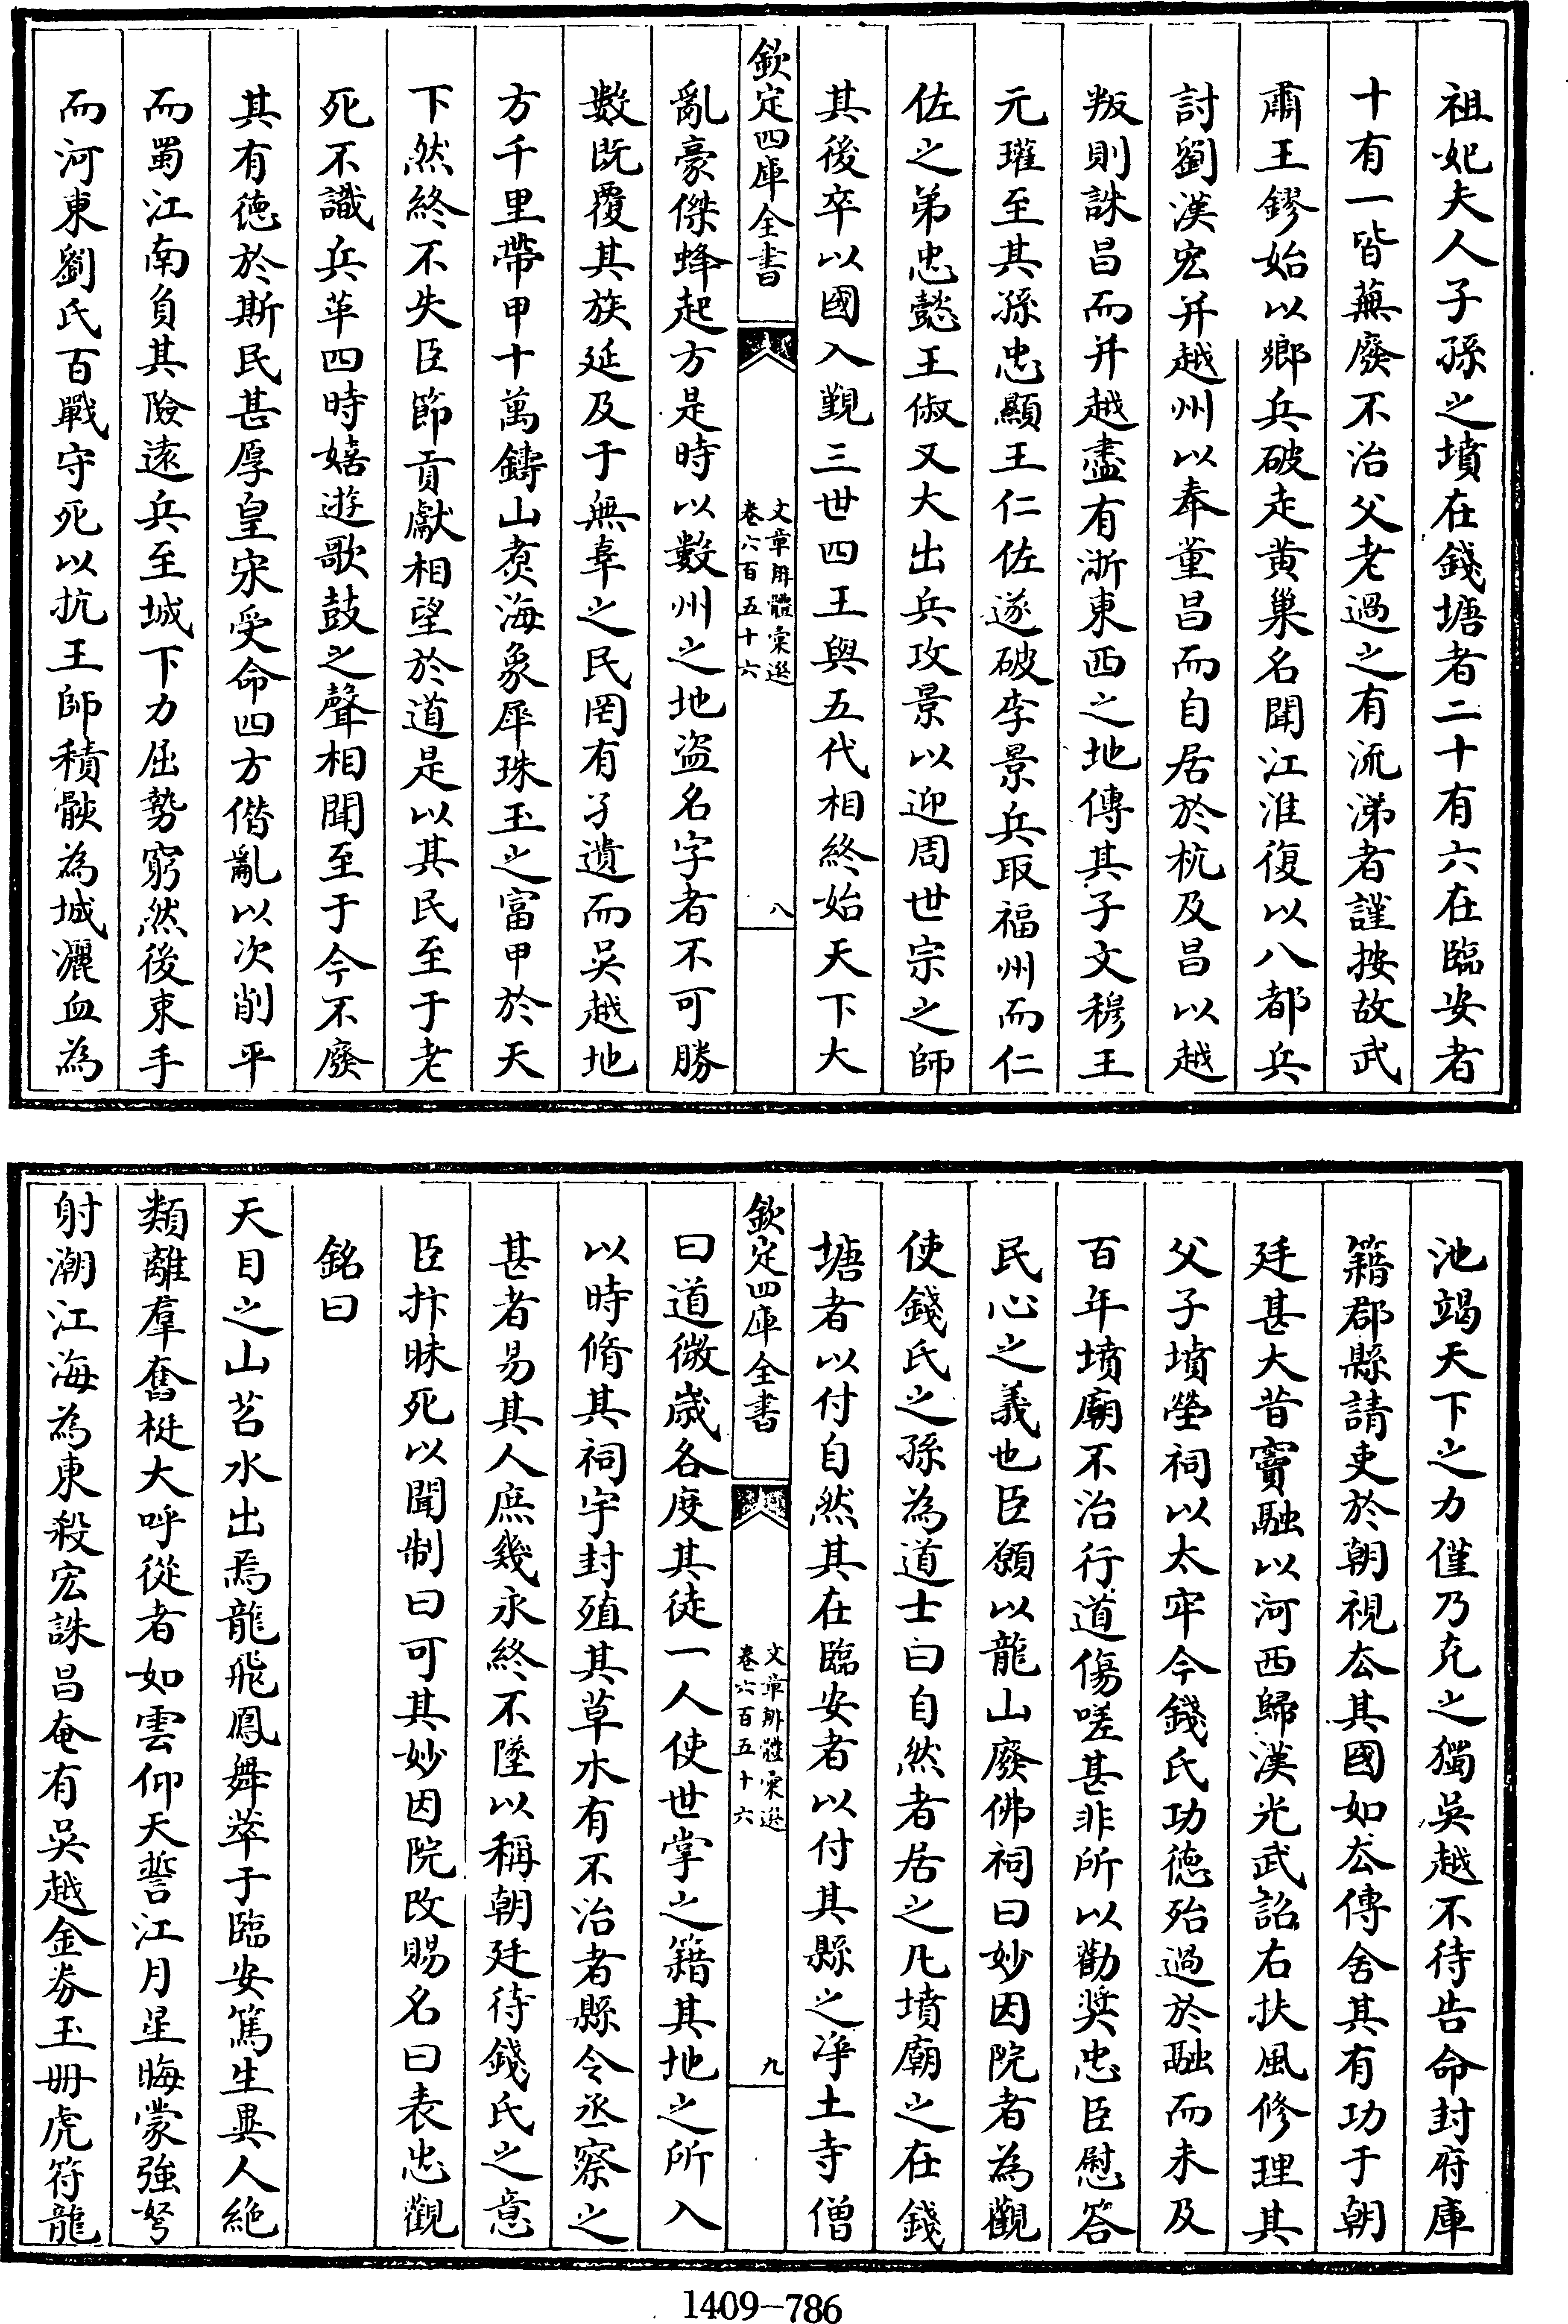 祖妃夫人子孫之墳在錢塘者二十有六在臨安者
十有一皆蕪廢不治父老過之有流涕者謹按故武
肅王鏐始以鄉兵破走黃巢名聞江淮復以八都兵
討劉漢宏并越州以奉董昌而自居於杭及昌以越
叛則誅昌而并越盡有浙東西之地傳其子文穆王
元瓘至其孫忠顯王仁佐遂破李景兵取福州而仁
佐之弟忠懿王俶又大出兵攻景以迎周世宗之師
其後卒以國入覲三世四王與五代相終始天下大
欽定四庫全書
文章辨體彙選
卷六百五十六
八
亂豪傑蜂起方是時以數州之地盜名字者不可勝
數既覆其族延及于無辜之民罔有孑遺而吳越地
方千里帶甲十萬鑄山煑海象犀珠玉之富甲於天
下然終不失臣節貢獻相望於道是以其民至于老
死不識兵革四時嬉遊歌鼓之聲相聞至于今不廢
其有德於斯民甚厚皇宋受命四方僭亂以次削平
而蜀江南負其險遠兵至城下力屈勢窮然後束手
而河東劉氏百戰守死以抗王師積骸為城灑血為
池竭天下之力僅乃克之獨吳越不待告命封府庫
籍郡縣請吏於朝視去其國如去傳舍其有功于朝
廷甚大昔竇融以河西歸漢光武詔右扶風修理其
父子墳塋祠以太牢今錢氏功德殆過於融而未及
百年墳廟不治行道傷嗟甚非所以勸奬忠臣慰答
民心之義也臣願以龍山廢佛祠曰妙因院者為觀
使錢氏之孫為道士曰自然者居之凡墳廟之在錢
塘者以付自然其在臨安者以付其縣之淨土寺僧
欽定四庫全書
文章辨體彙選
卷六百五十六
九
曰道微歲各度其徒一人使世掌之籍其地之所入
以時脩其祠宇封殖其草木有不治者縣令丞察之
甚者易其人庶幾永終不墜以稱朝廷待錢氏之意
臣抃昧死以聞制曰可其妙因院改賜名曰表忠觀
銘曰
天目之山苕水出焉龍飛鳳舞萃于臨安篤生異人絶
類離羣奮梃大呼從者如雲仰天誓江月星晦蒙強弩
射潮江海為東殺宏誅昌奄有吳越金券玉冊虎符龍
1409-786